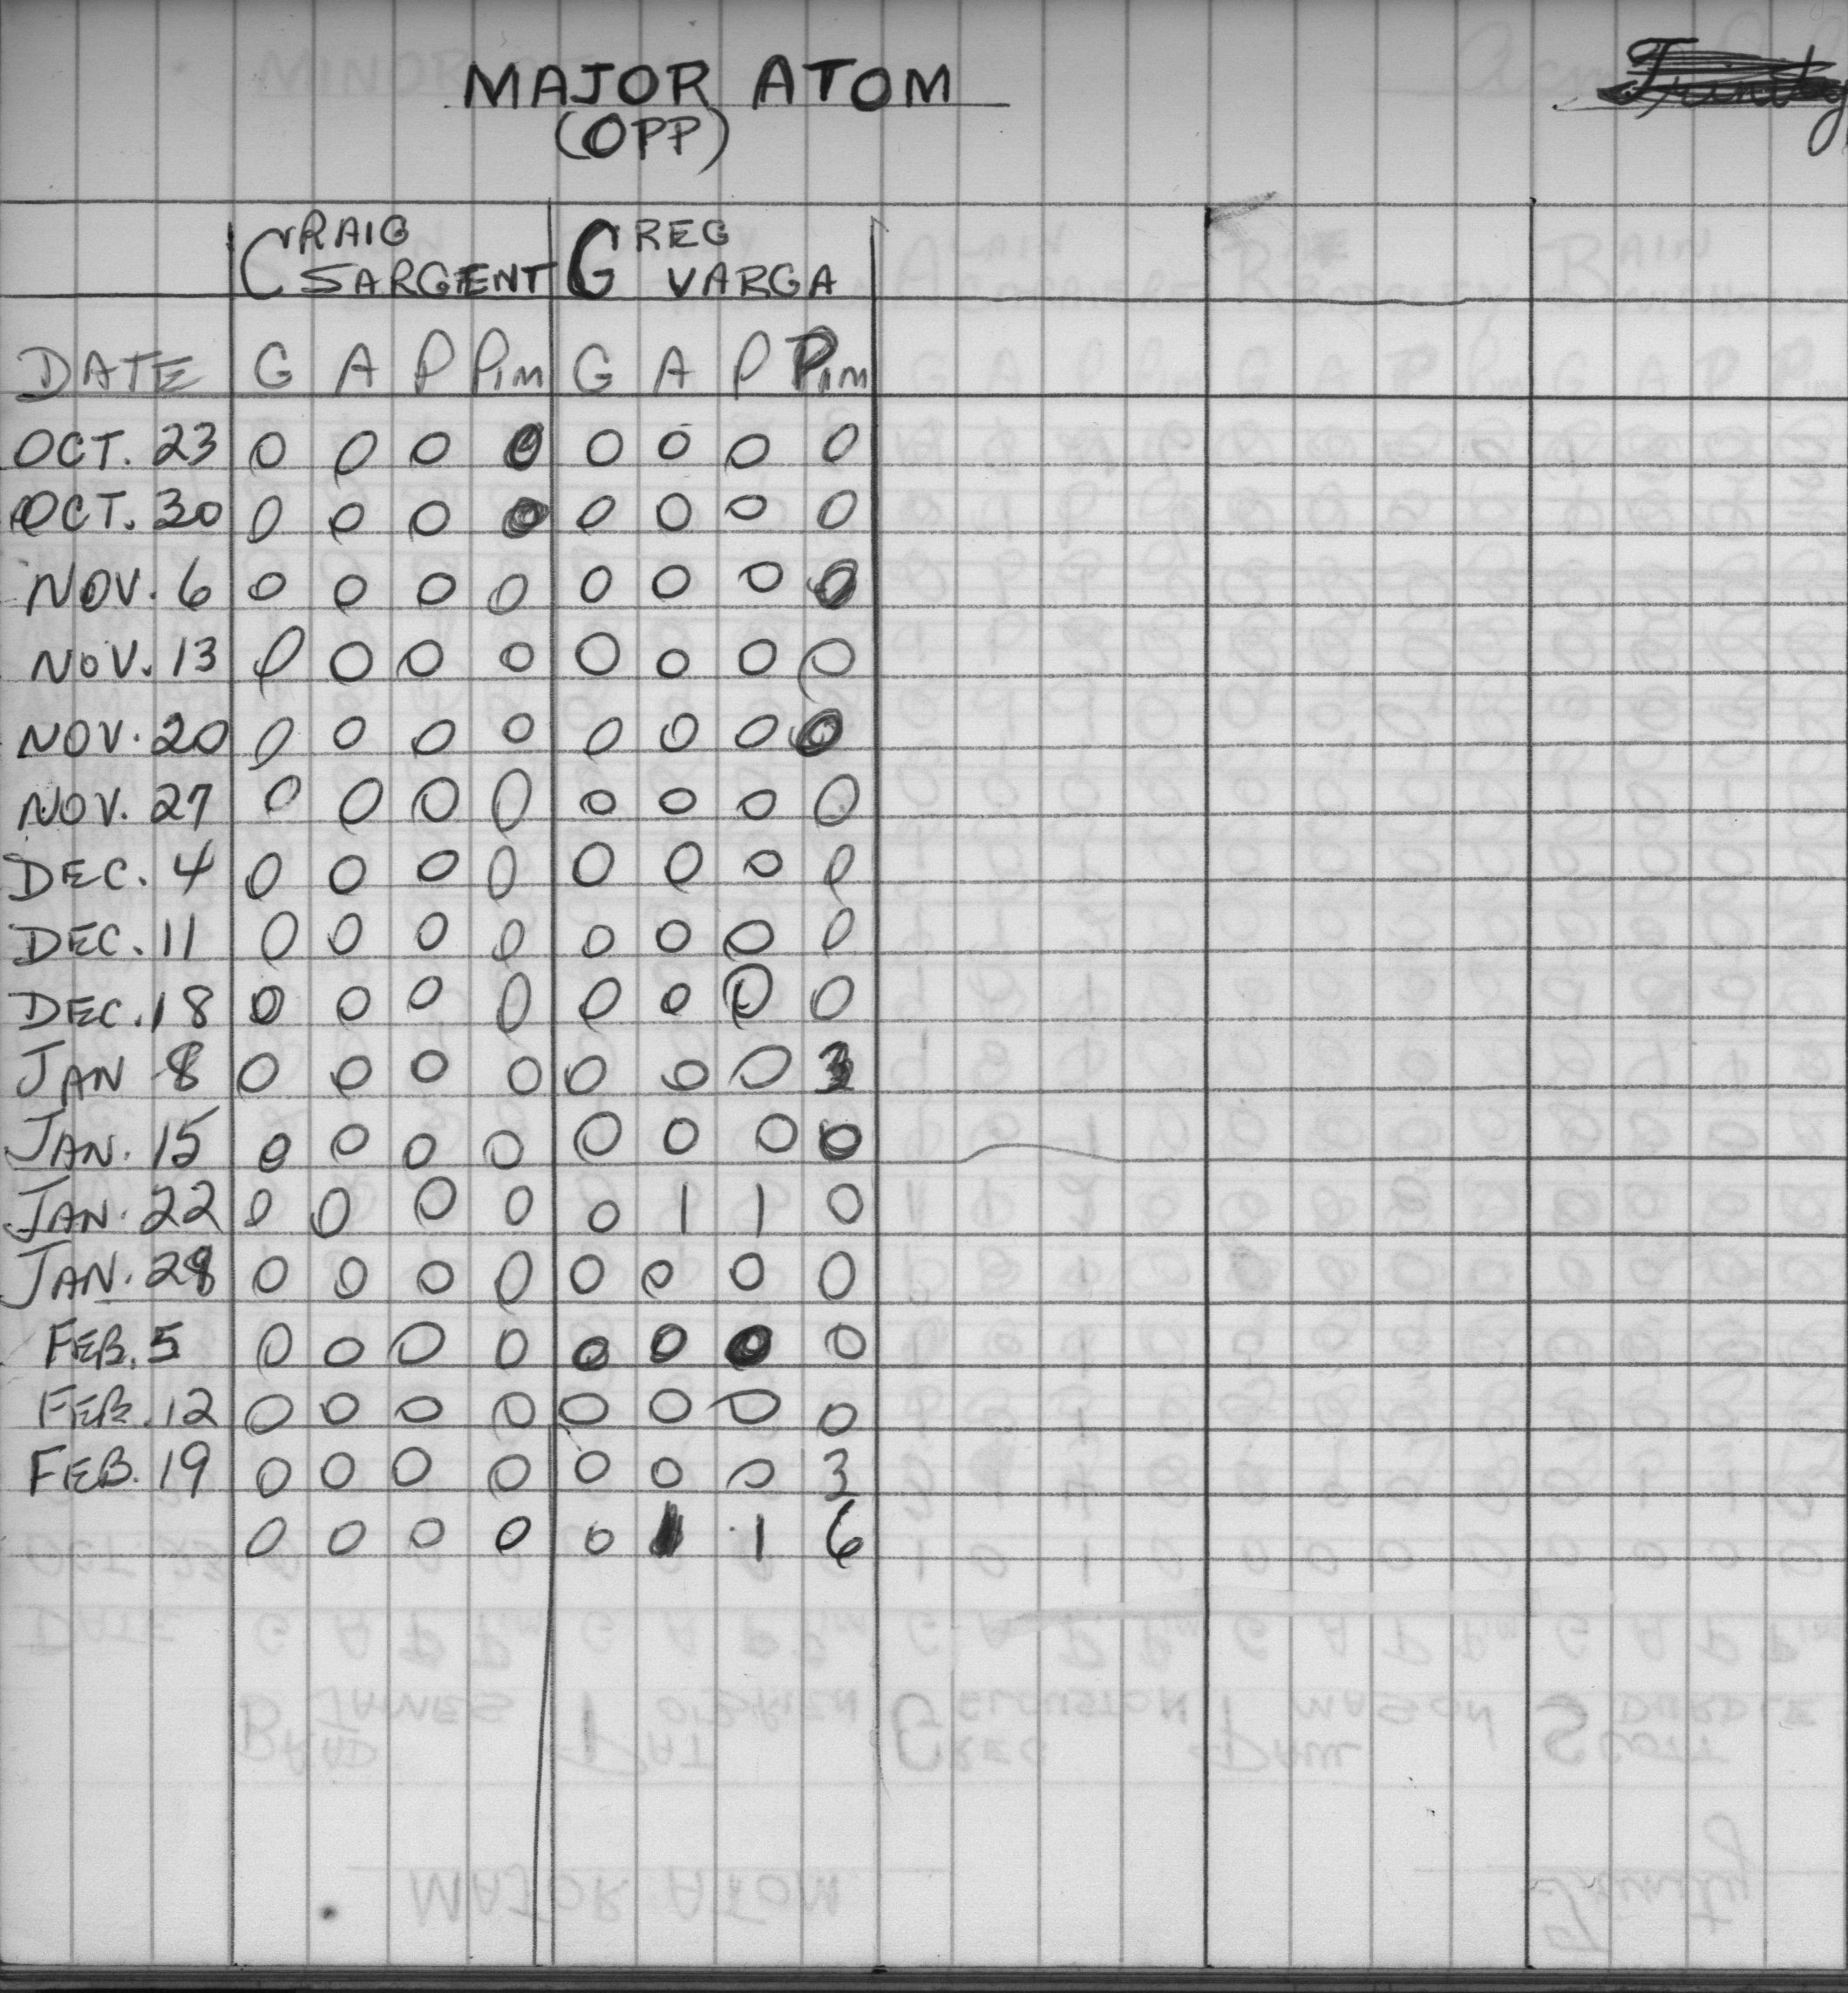 MAJOR ATOM
(OPP)
Trinity
CRAIG SARGENT GREG VARGA
DATE G A P Pim G A P Pim
OCT. 23 0 0 0 0 0 0 0 0
OCT. 30 0 0 0 0 0 0 0 0
NOV. 6 0 0 0 0 0 0 0 0
NOV. 13 0 0 0 0 0 0 0 0
NOV. 20 0 0 0 0 0 0 0 0
NOV. 27 0 0 0 0 0 0 0 0
DEC. 4 0 0 0 0 0 0 0 0
DEC. 11 0 0 0 0 0 0 0 0
DEC. 18 0 0 0 0 0 0 0 0
JAN 8 0 0 0 0 0 0 0 3
JAN. 15 0 0 0 0 0 0 0 0
JAN. 22 0 0 0 0 0 1 1 0
JAN. 28 0 0 0 0 0 0 0 0
FEB. 5 0 0 0 0 0 0 0 0
FEB. 12 0 0 0 0 0 0 0 0
FEB. 19 0 0 0 0 0 0 0 3
0 0 0 0 0 1 1 6